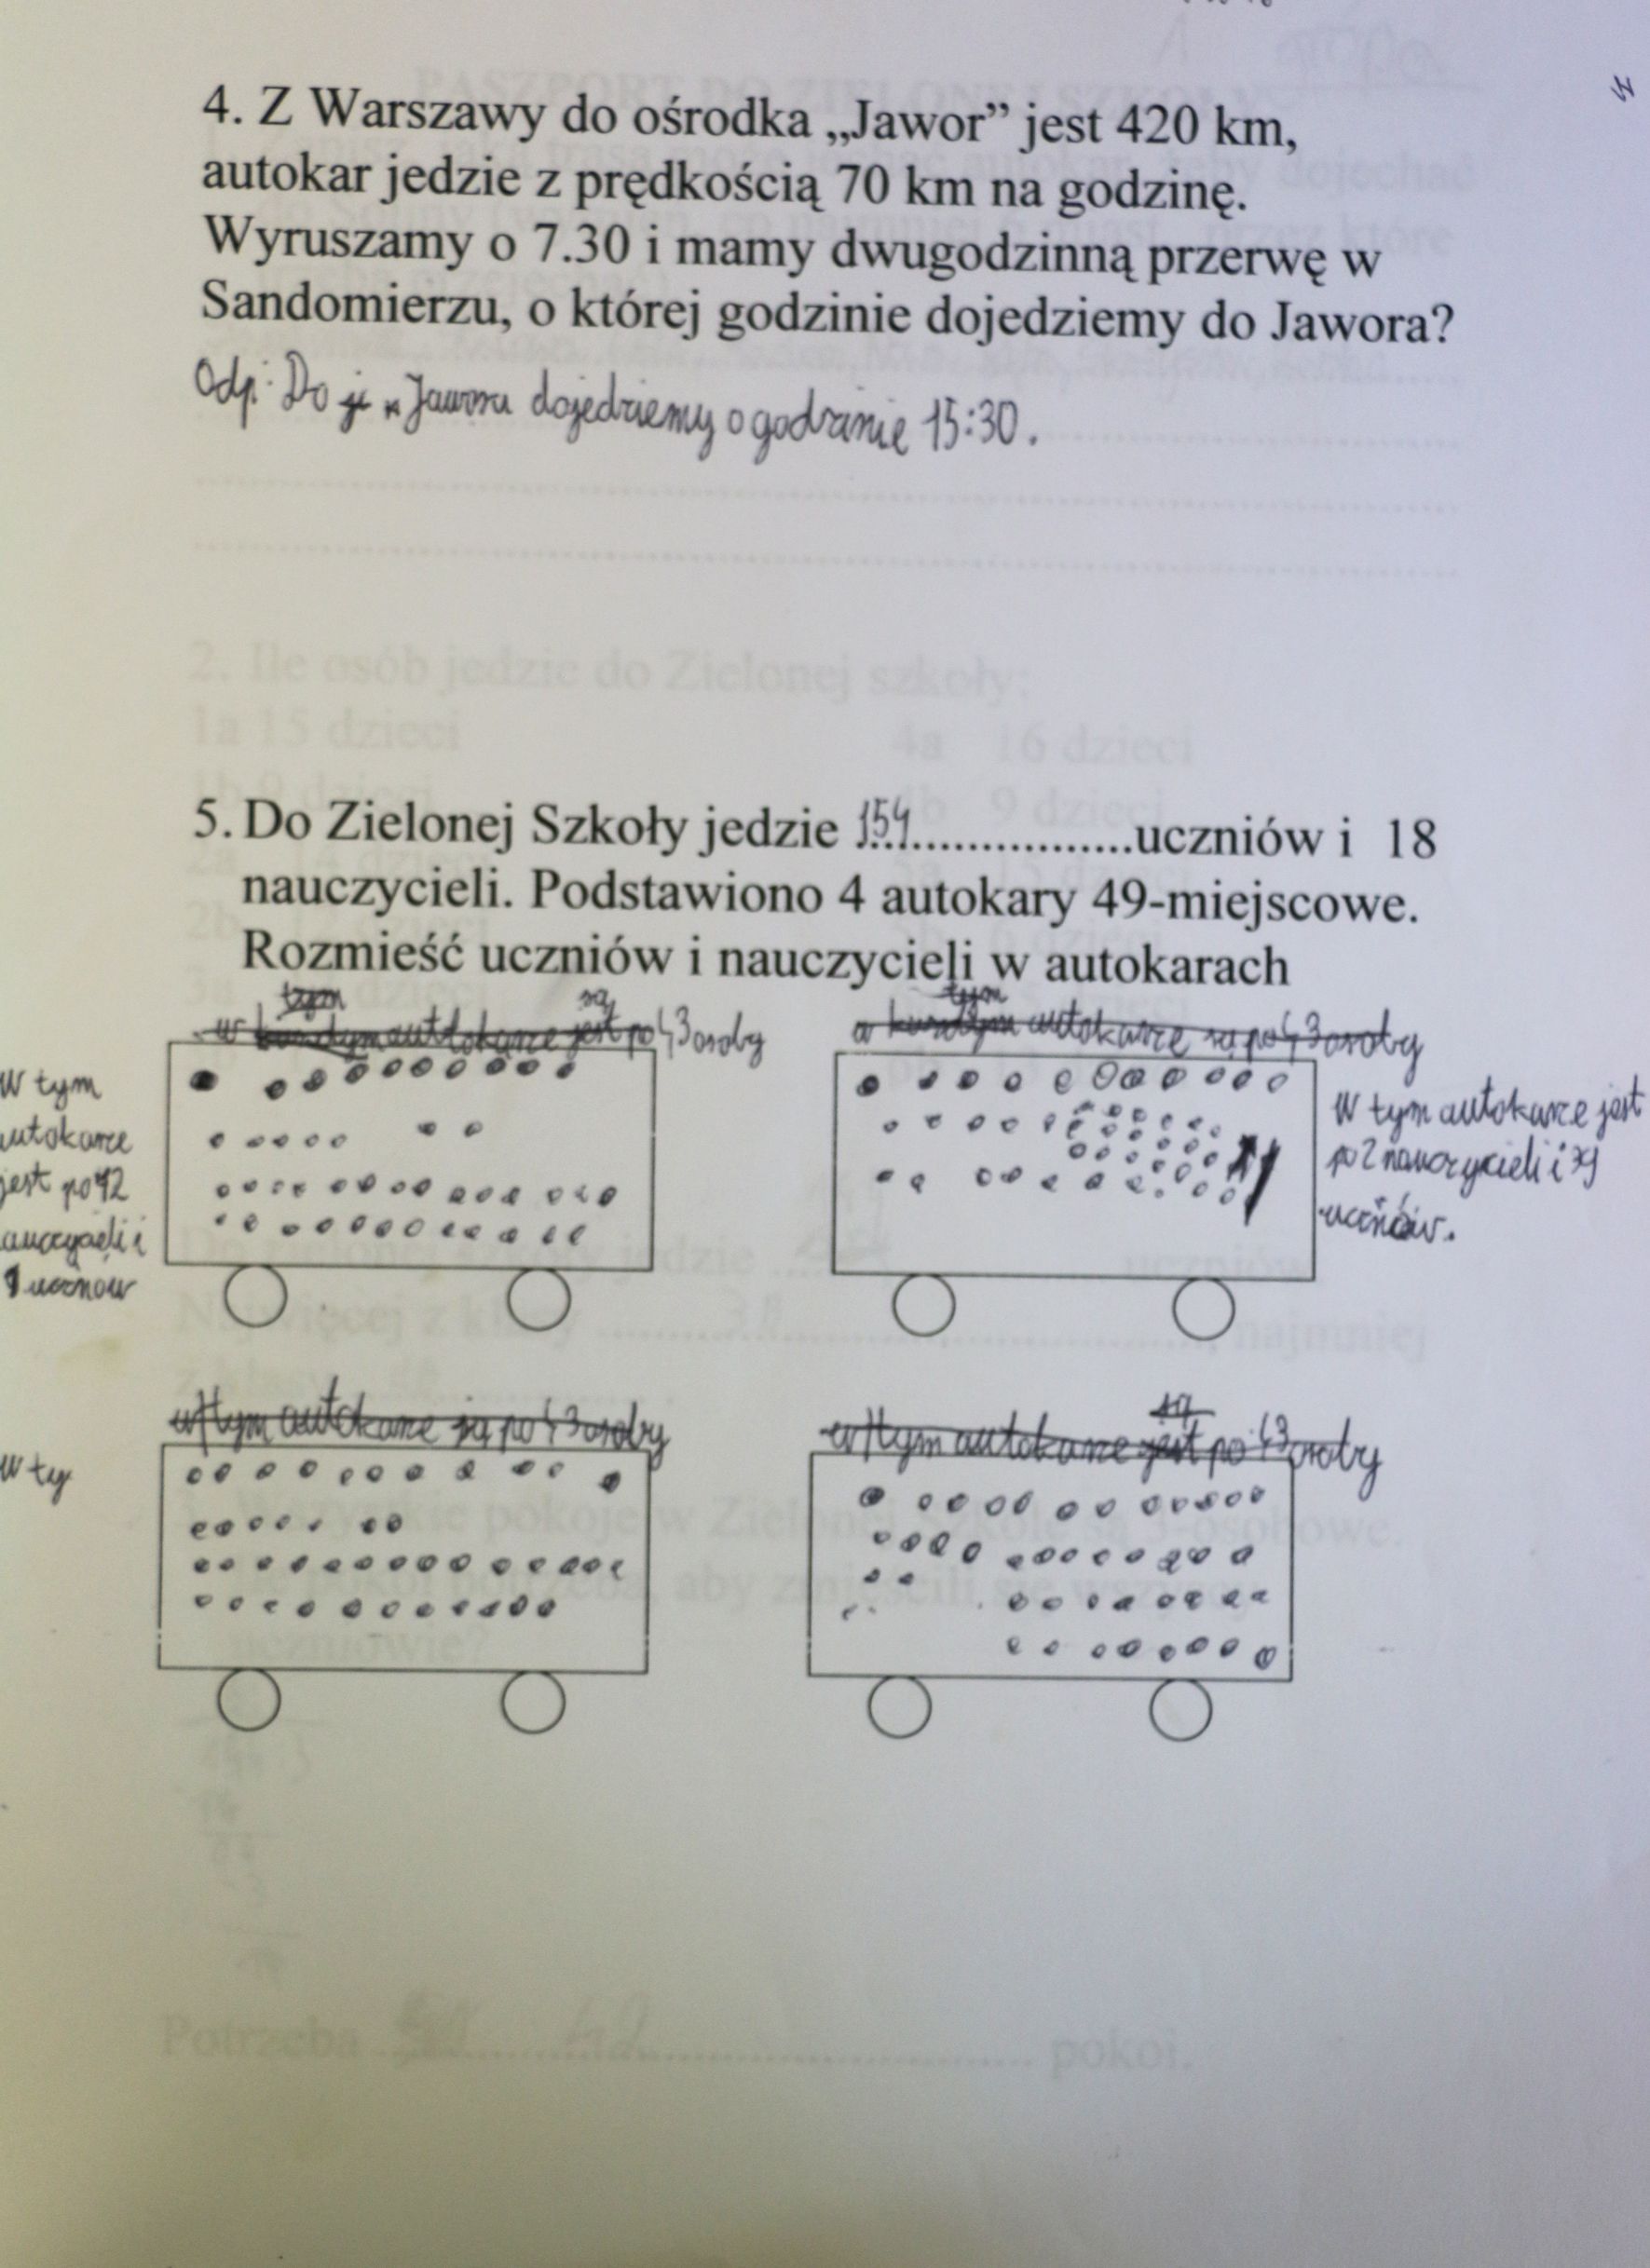 4. Z Warszawy do ośrodka „Jawor” jest 420 km,
autokar jedzie z prędkością 70 km na godzinę.
Wyruszamy o 7.30 i mamy dwugodzinną przerwę w
Sandomierzu, o której godzinie dojedziemy do Jawora?
Odp: Do Jawora dojedziemy o godzinie 15:30.
2. Ile osób jedzie do Zielonej szkoły:
1a 15 dzieci 4a 16 dzieci
5. Do Zielonej Szkoły jedzie 154 uczniów i 18
nauczycieli. Podstawiono 4 autokary 49-miejscowe.
Rozmieść uczniów i nauczycieli w autokarach
tym są
w autokarze jest po 43 osoby
tym
autokarze są po 43 osoby
W tym
autokarze
jest po
uczniów
W tym autokarze jest
po 2 nauczycieli i
uczniów.
w tym autokarze są po 43 osoby
są
w tym autokarze jest po 43 osoby
W ty
Potrzeba pokoi.